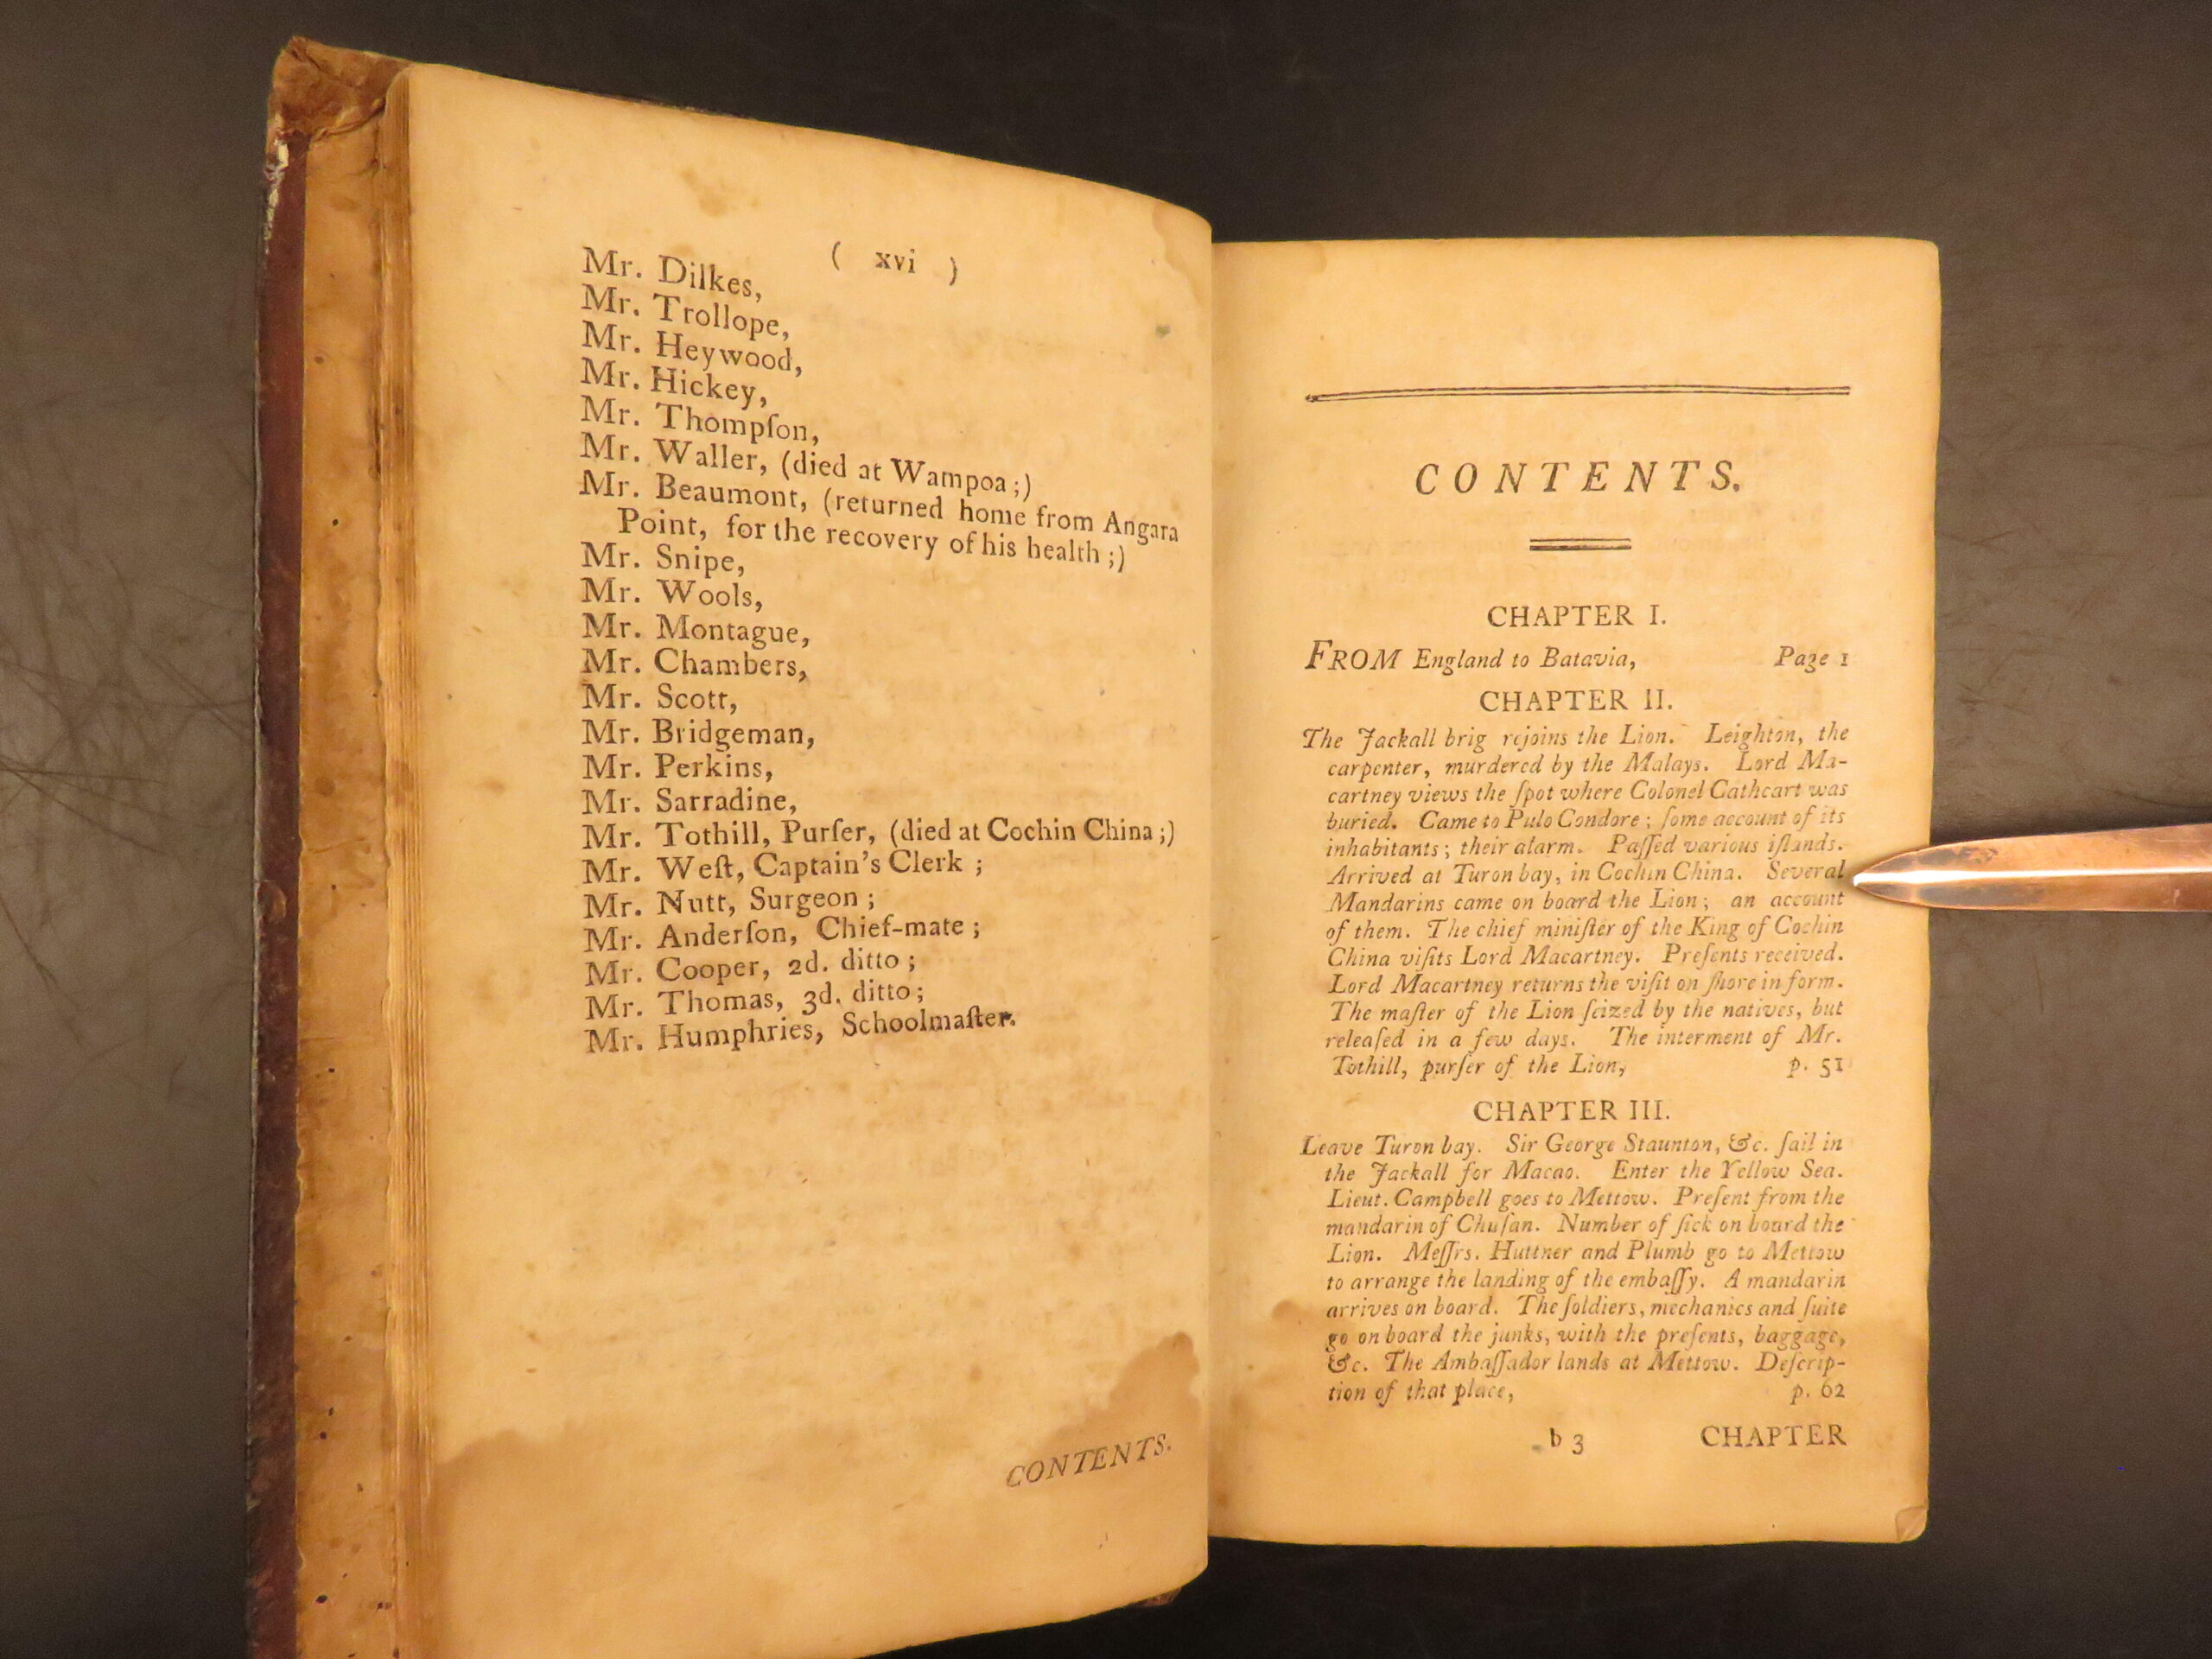 ( xvi )
Mr. Dilkes,
Mr. Trollope,
Mr. Heywood,
Mr. Hickey,
Mr. Thompſon,
Mr. Waller, (died at Wampoa;)
Mr. Beaumont, (returned home from Angara
Point, for the recovery of his health;)
Mr. Snipe,
Mr. Wools,
Mr. Montague,
Mr. Chambers,
Mr. Scott,
Mr. Bridgeman,
Mr. Perkins,
Mr. Sarradine,
Mr. Tothill, Purſer, (died at Cochin China;)
Mr. Weſt, Captain's Clerk;
Mr. Nutt, Surgeon;
Mr. Anderſon, Chief-mate;
Mr. Cooper, 2d. ditto;
Mr. Thomas, 3d. ditto;
Mr. Humphries, Schoolmaſter.
CONTENTS.
CONTENTS.
CHAPTER I.
FROM England to Batavia, Page 1
CHAPTER II.
The Jackall brig rejoins the Lion. Leighton, the
carpenter, murdered by the Malays. Lord Ma-
cartney views the ſpot where Colonel Cathcart was
buried. Came to Pulo Condore; ſome account of its
inhabitants; their alarm. Paſſed various iſlands.
Arrived at Turon bay, in Cochin China. Several
Mandarins came on board the Lion; an account
of them. The chief miniſter of the King of Cochin
China viſits Lord Macartney. Preſents received.
Lord Macartney returns the viſit on ſhore in form.
The maſter of the Lion ſeized by the natives, but
releaſed in a few days. The interment of Mr.
Tothill, purſer of the Lion, p. 51
CHAPTER III.
Leave Turon bay. Sir George Staunton, &c. ſail in
the Jackall for Macao. Enter the Yellow Sea.
Lieut. Campbell goes to Mettow. Preſent from the
mandarin of Chuſan. Number of ſick on board the
Lion. Meſſrs. Huttner and Plumb go to Mettow
to arrange the landing of the embaſſy. A mandarin
arrives on board. The ſoldiers, mechanics and ſuite
go on board the junks, with the preſents, baggage,
&c. The Ambaſſador lands at Mettow. Deſcrip-
tion of that place, p. 62
b 3 CHAPTER